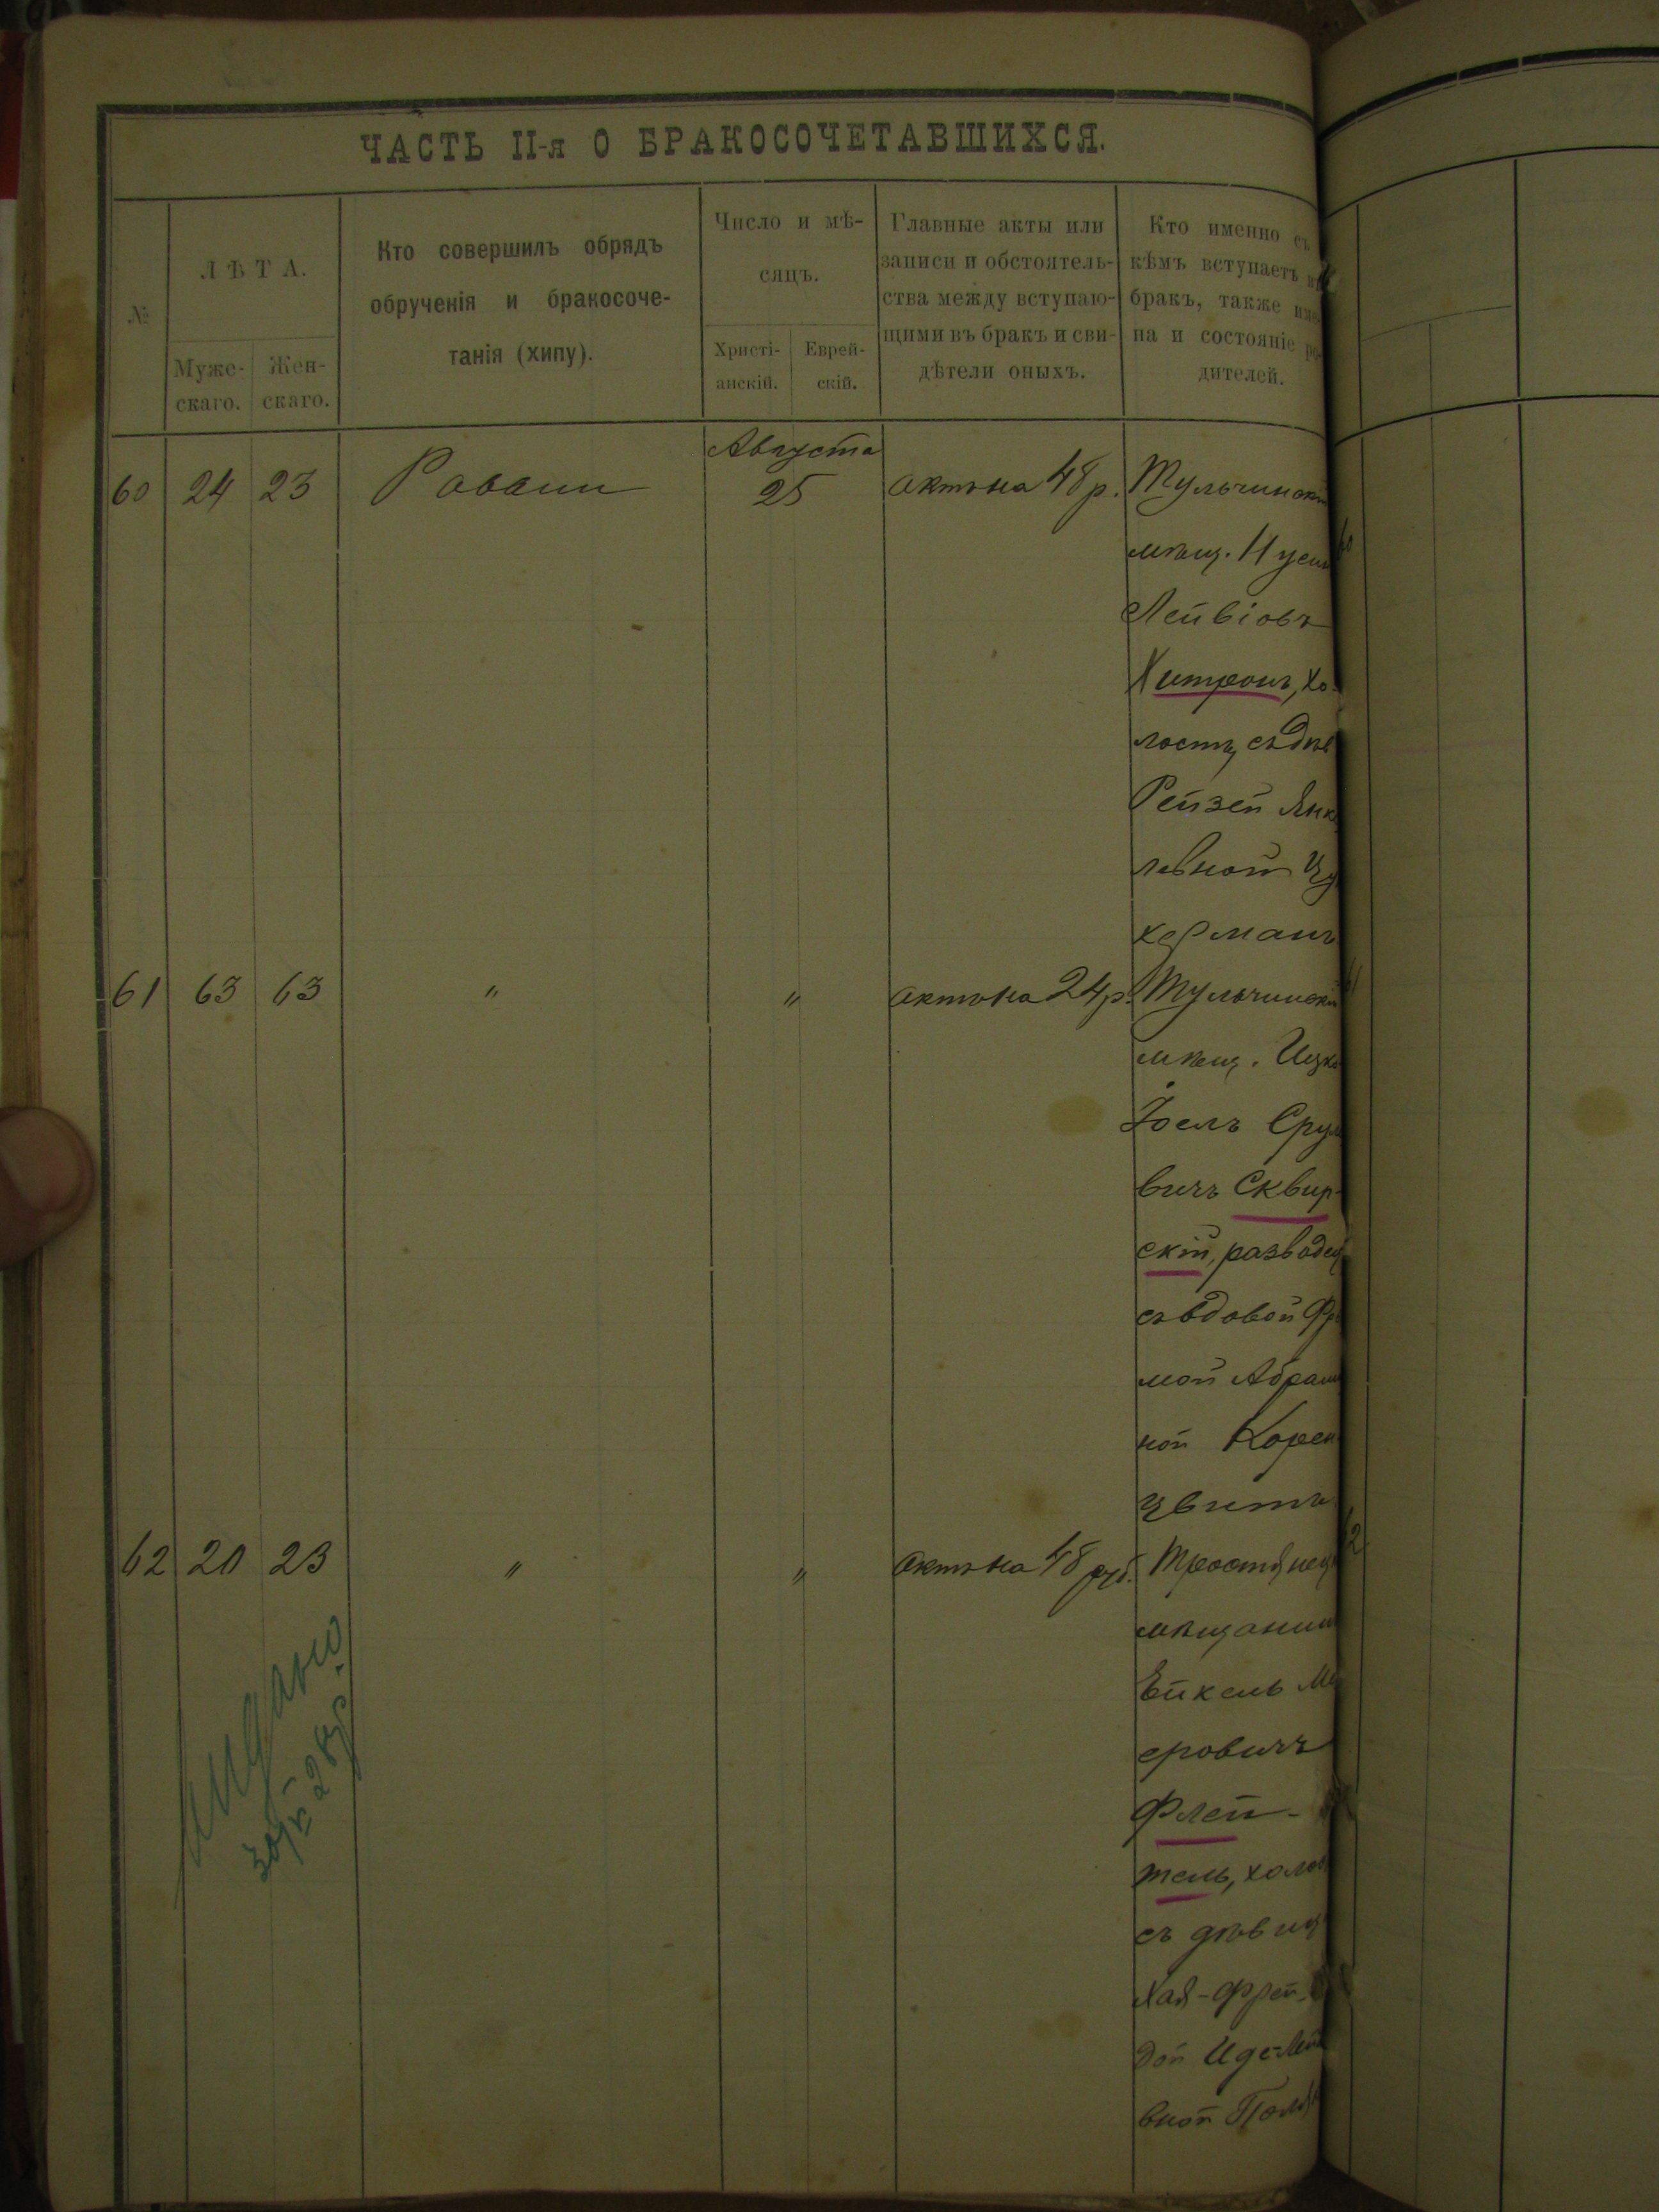 ЧАСТЬ II-я О БРАКОСОЧЕТАВШИХСЯ.
№
ЛѢТА.
Муже-
скаго.
Жен-
скаго.
Кто совершилъ обрядъ
обрученія и бракосоче-
танія (хипу).
Число и мѣ-
сяцъ.
Христі-
анскій.
Еврей-
скій.
Главные акты или
записи и обстоятель-
ства между вступаю-
щими въ бракъ и сви-
дѣтели оныхъ.
Кто именно съ
кѣмъ вступаетъ въ
бракъ, также име-
на и состояніе ро-
дителей.
Августа
60 24 23 Равви 25 актъ на 48 р. Тульчинскій
мѣщ.
Лейвіовъ
Хитронъ, хо-
лостъ, съ дѣв
Рейзей Янк
левной Цу
керманъ
61 63 63 " " актъ на 24 р. Тульчинскій
мѣщ. Ицко
Іоелъ Срул
вичъ Сквир-
скій, разводец
съ вдовой
мой Абрам
ной Корен
цвитъ
62 20 23 " " актъ на 48 руб. Тростянец
мѣщанин
Ейкель Ме
еровичъ
Флей-
тель, холос
съ дѣвиц
Хая-Фрей-
дой
вной Поля